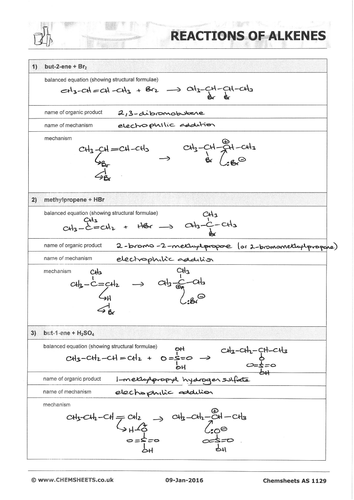 REACTIONS OF ALKENES
1) but-2-ene + Br₂
balanced equation (showing structural formulae)
CH₃-CH=CH-CH₃ + Br₂ → CH₃-CH-CH-CH₃
Br Br
name of organic product 2,3-dibromobutane
name of mechanism electrophilic addition
mechanism
CH₃-CH=CH-CH₃ → CH₃-CH-CH-CH₃
⊕
Br Br :Br⊖
Br
2) methylpropene + HBr
balanced equation (showing structural formulae)
CH₃ CH₃
CH₃-C=CH₂ + HBr → CH₃-C-CH₃
Br
name of organic product 2-bromo-2-methylpropane (or 2-bromomethylpropane)
name of mechanism electrophilic addition
mechanism
CH₃ CH₃
CH₃-C=CH₂ → CH₃-C-CH₃
⊕
H :Br⊖
Br
3) but-1-ene + H₂SO₄
balanced equation (showing structural formulae)
OH
CH₃-CH₂-CH=CH₂ + O=S=O → CH₃-CH₂-CH-CH₃
OH O
O=S=O
OH
name of organic product 1-methylpropyl hydrogensulfate
name of mechanism electrophilic addition
mechanism
CH₃-CH₂-CH=CH₂ → CH₃-CH₂-CH-CH₃
⊕
H-O :O⊖
O=S=O O=S=O
OH OH
© www.CHEMSHEETS.co.uk 09-Jan-2016 Chemsheets AS 1129